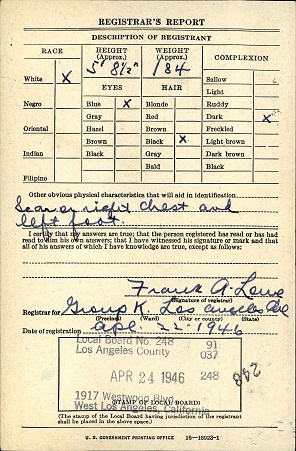 REGISTRAR'S REPORT
DESCRIPTION OF REGISTRANT
RACE
HEIGHT (Approx.)
WEIGHT (Approx.)
COMPLEXION
5' 8½"
184
White X
EYES
HAIR
Sallow
Light
Negro
Blue X
Blonde
Ruddy
Gray
Red
Dark X
Oriental
Hazel
Brown
Freckled
Brown
Black X
Light brown
Indian
Black
Gray
Dark brown
Bald
Black
Filipino
Other obvious physical characteristics that will aid in identification
Scar on right chest and
left foot.
I certify that my answers are true; that the person registered has read or has had
read to him his own answers; that I have witnessed his signature or mark and that
all of his answers of which I have knowledge are true, except as follows:
Frank A.
(Signature of registrar)
Registrar for Group K Los Angeles
(Precinct) (Ward) (City or county) (State)
Date of registration Apr. 22-1946
Local Board No. 248 91
Los Angeles County 037
APR 24 1946 248
248
1917 Westwood Blvd.
West Los Angeles, California
(STAMP OF LOCAL BOARD)
(The stamp of the Local Board having jurisdiction of the registrant
shall be placed in the above space.)
U. S. GOVERNMENT PRINTING OFFICE 16—18923-1